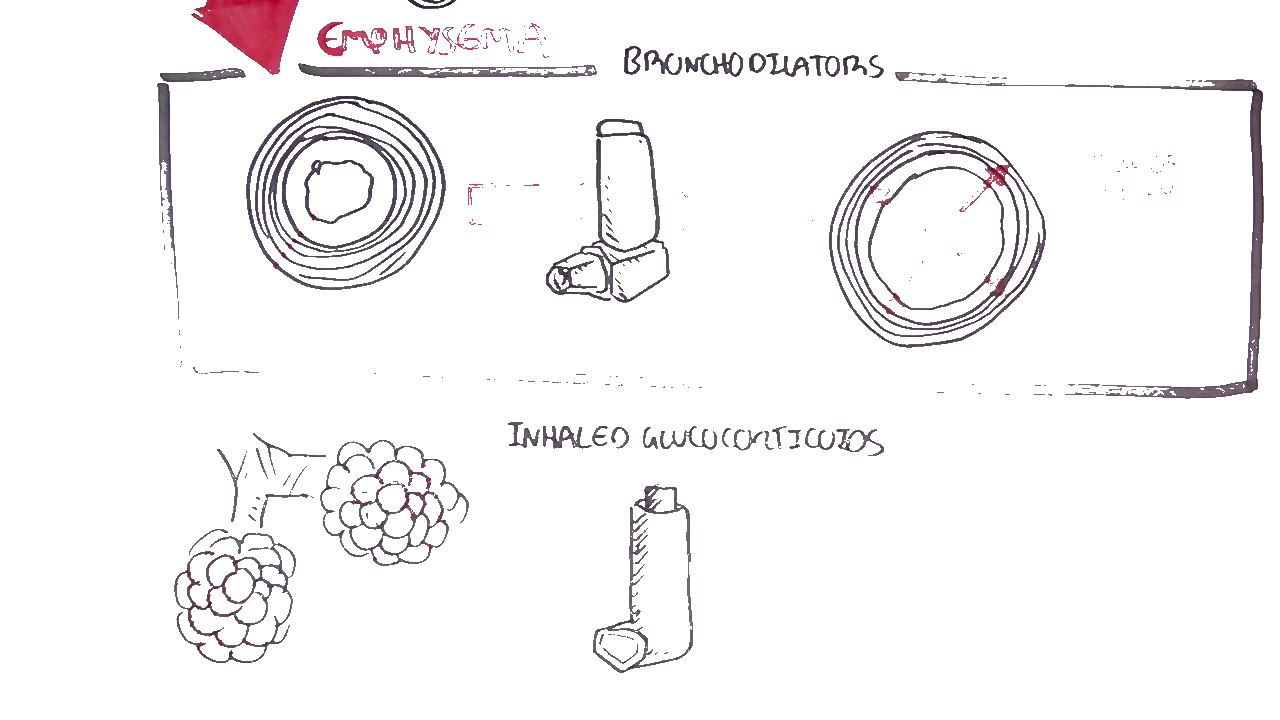 EMPHYSEMA
BRONCHODILATORS
INHALED GLUCOCORTICOIDS